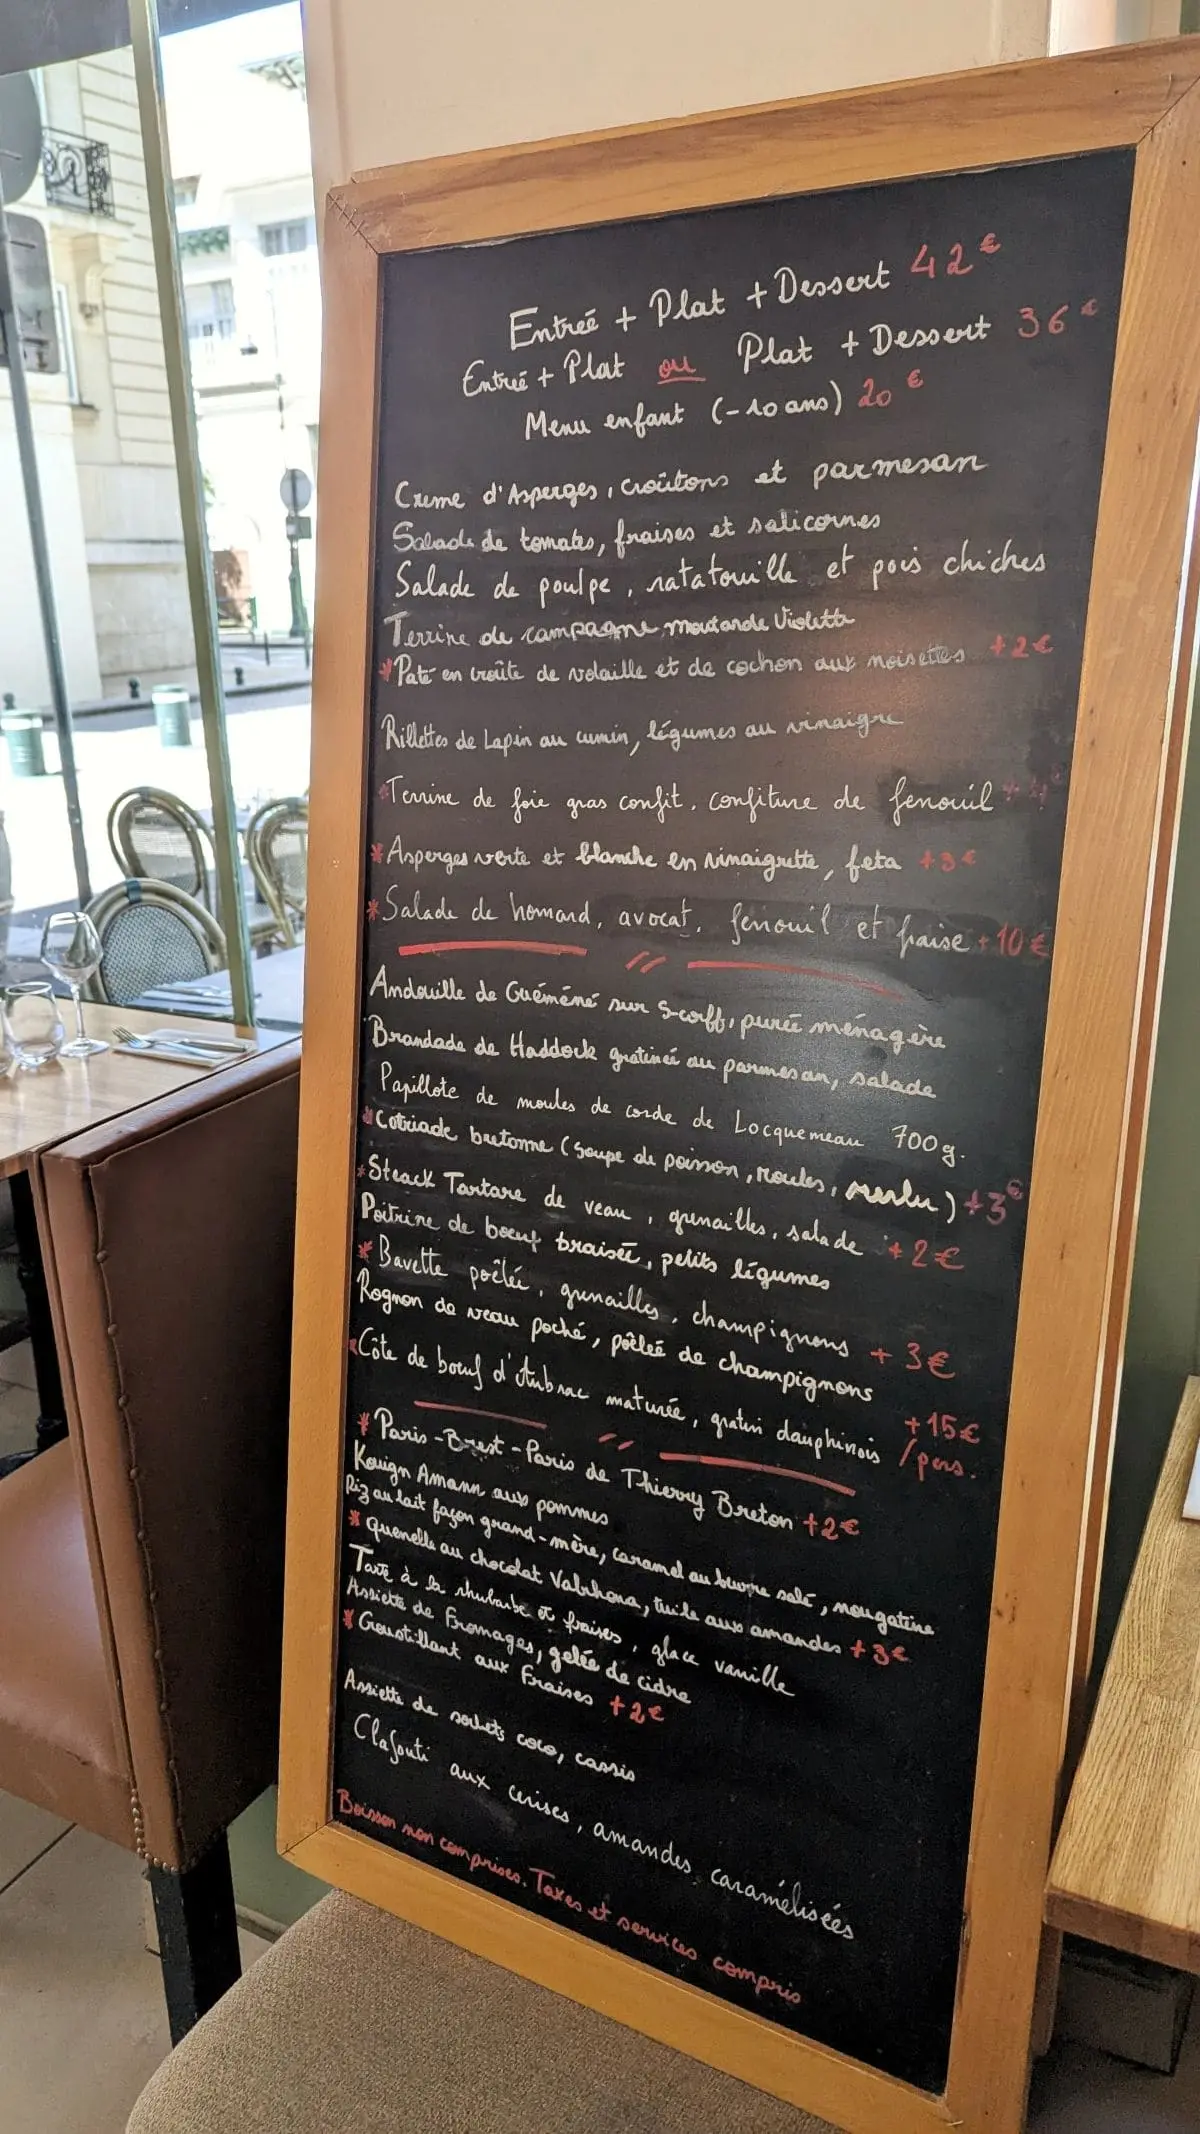 Entreé + Plat + Dessert 42€
Entreé + Plat ou Plat + Dessert 36€
Menu enfant (-10 ans) 20€
Creme d'Asperges, croûtons et parmesan
Salade de tomates, fraises et salicornes
Salade de poulpe, ratatouille et pois chiches
Terrine de campagne moutarde Violette
*Paté en croûte de volaille et de cochon aux noisettes +2€
Rillettes de Lapin au cumin, légumes au vinaigre
*Terrine de foie gras confit, confiture de fenouil
*Asperges verte et blanche en vinaigrette, feta +3€
*Salade de homard, avocat, fenouil et fraise +10€
Andouille de Guéméné sur Scorff, purée ménagère
Brandade de Haddock gratineé au parmesan, salade
Papillote de moules de corde de Locquemeau 700g.
*Cotriade bretonne (Soupe de poisson, moules, merlu) +3€
*Steack Tartare de veau, grenailles, salade +2€
Poitrine de boeuf braisée, petits légumes
*Bavette poêlée, grenailles, champignons +3€
Rognon de veau poché, poêleé de champignons
*Côte de boeuf d'Aubrac maturée, gratin dauphinois +15€ /pers.
*Paris-Brest-Paris de Thierry Breton +2€
Kouign Amann aux pommes
Riz au lait façon grand-mère, caramel au beurre salé, nougatine
*Quenelle au chocolat Valrhona, tuile aux amandes +3€
Tarte à la rhubarbe et fraises, glace vanille
Assiette de Fromages, gelée de cidre
*Croustillant aux Fraises +2€
Assiette de sorbets coco, cassis
Clafouti aux cerises, amandes caramélisées
Boisson non comprises. Taxes et services compris